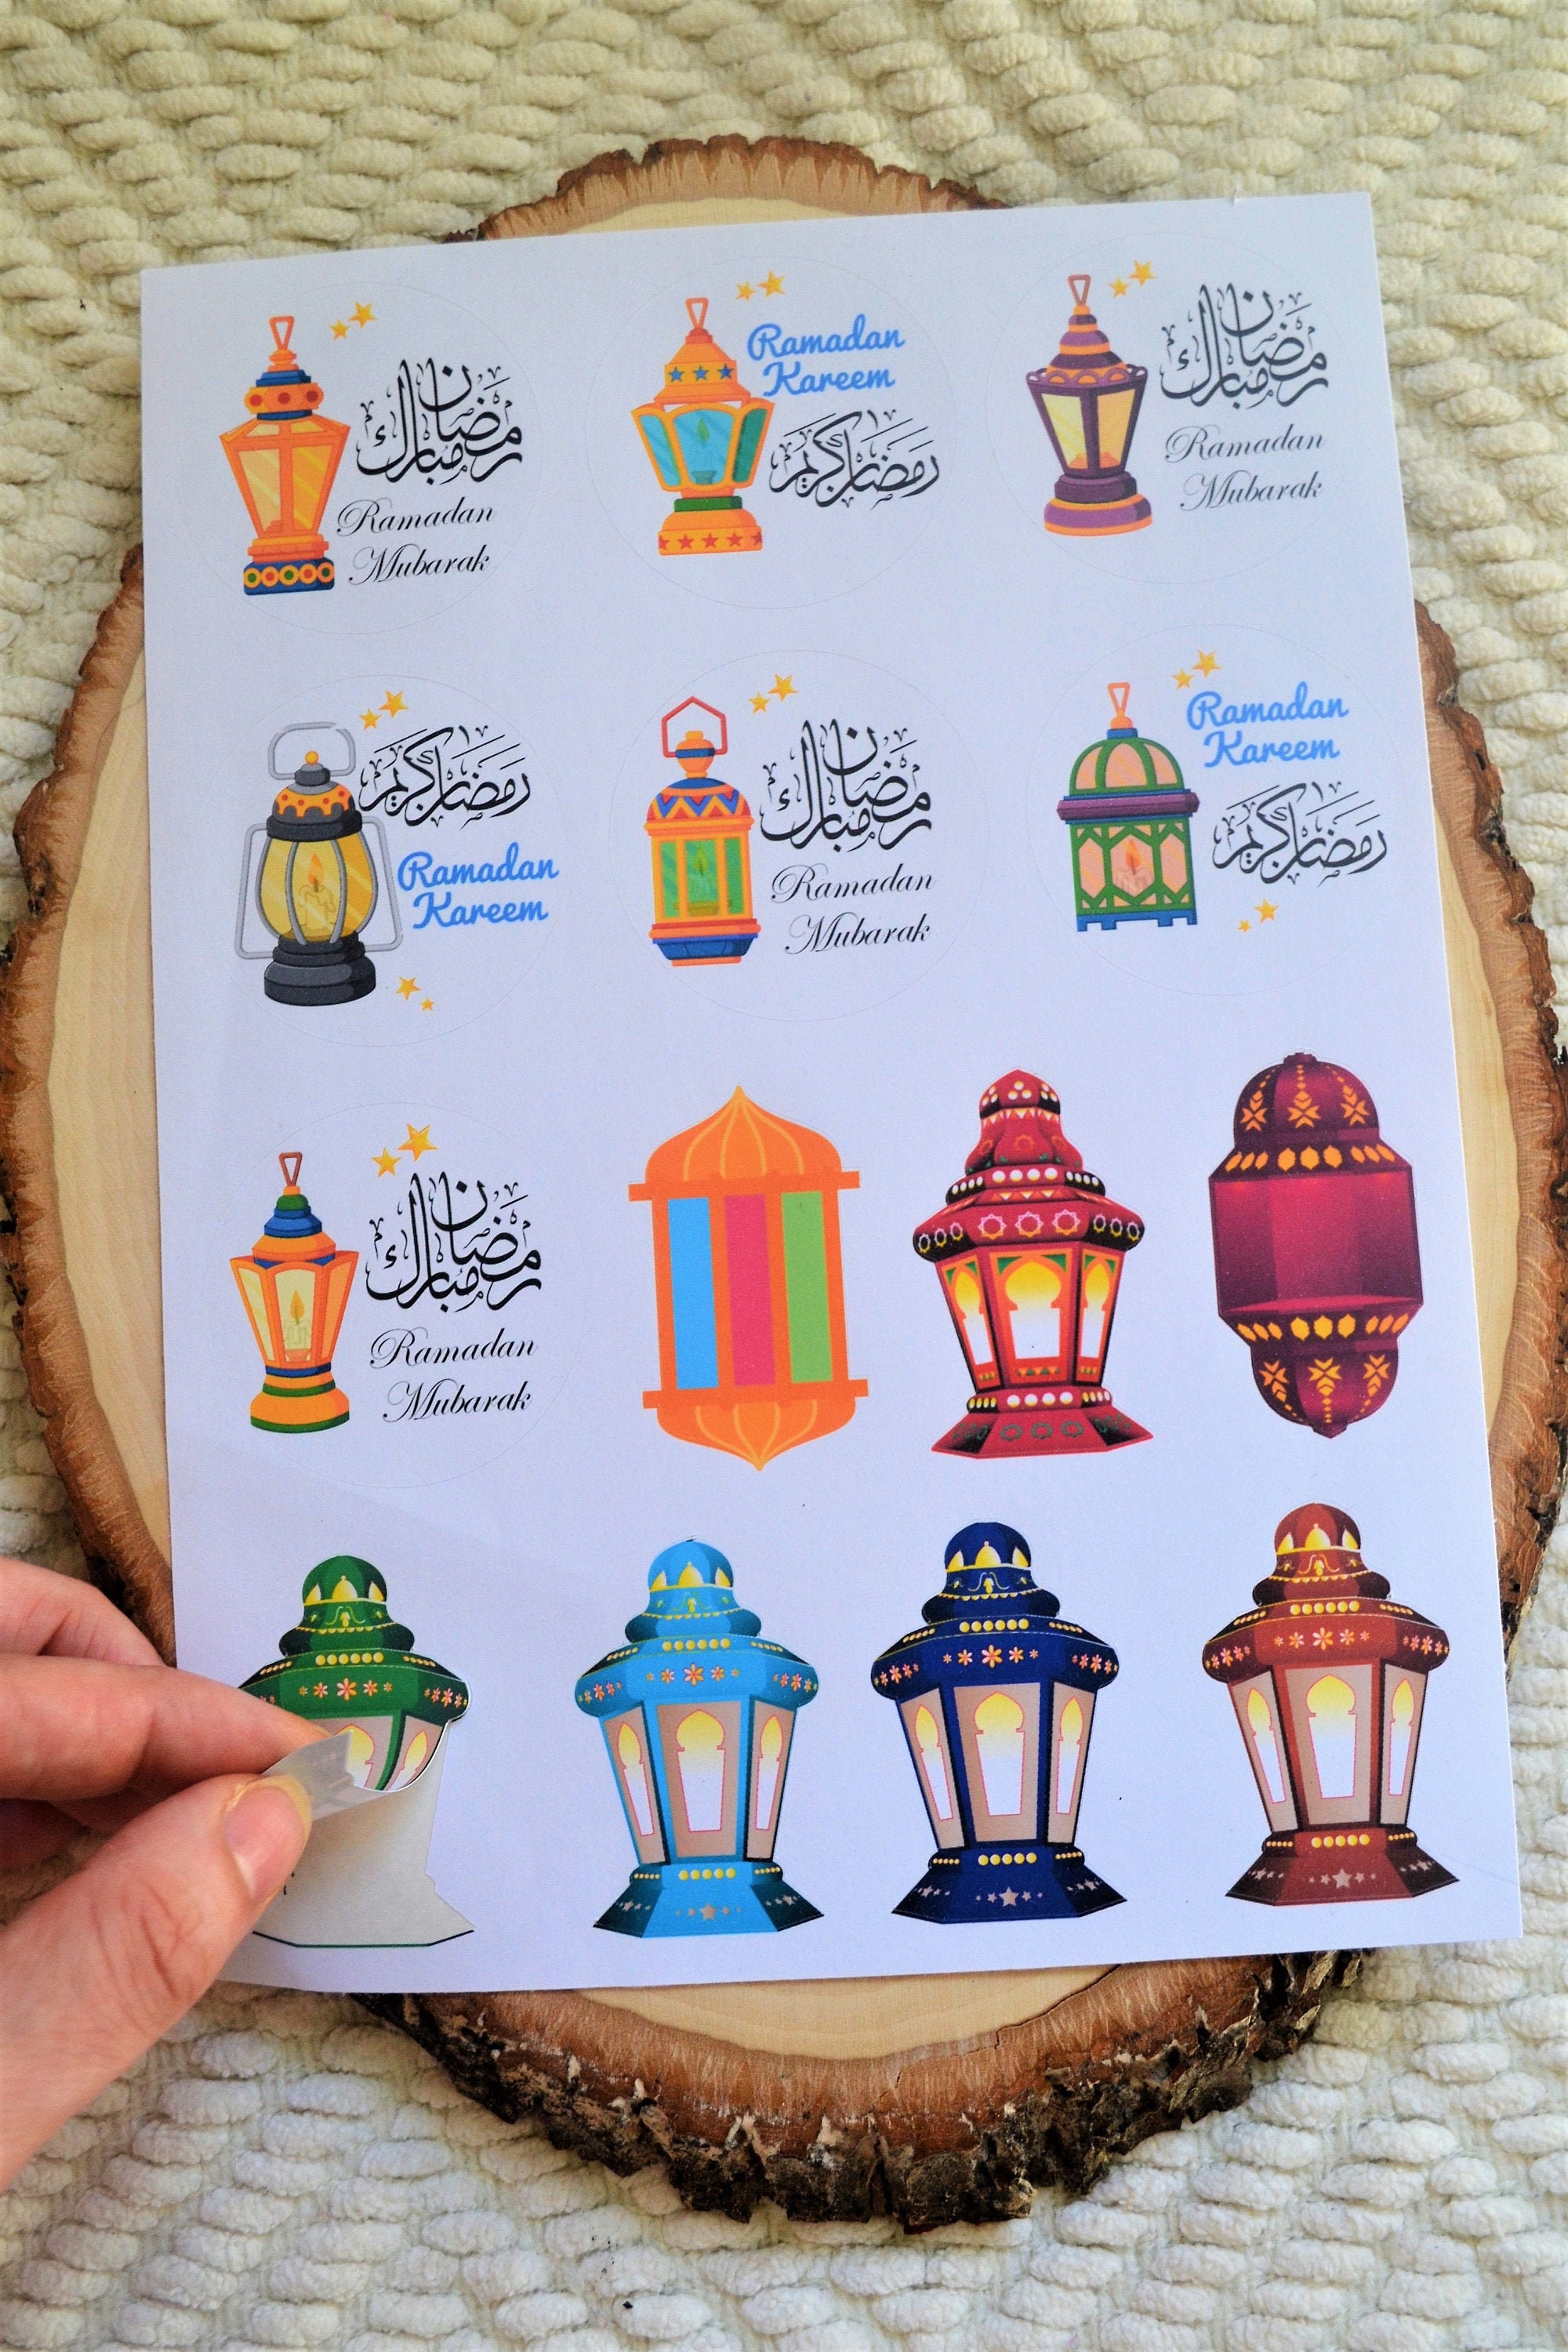 رمضان
مبارك
Ramadan
Mubarak
Ramadan
Kareem
رمضان كريم
رمضان
مبارك
Ramadan
Mubarak
رمضان كريم
Ramadan
Kareem
رمضان
مبارك
Ramadan
Mubarak
Ramadan
Kareem
رمضان كريم
رمضان
مبارك
Ramadan
Mubarak